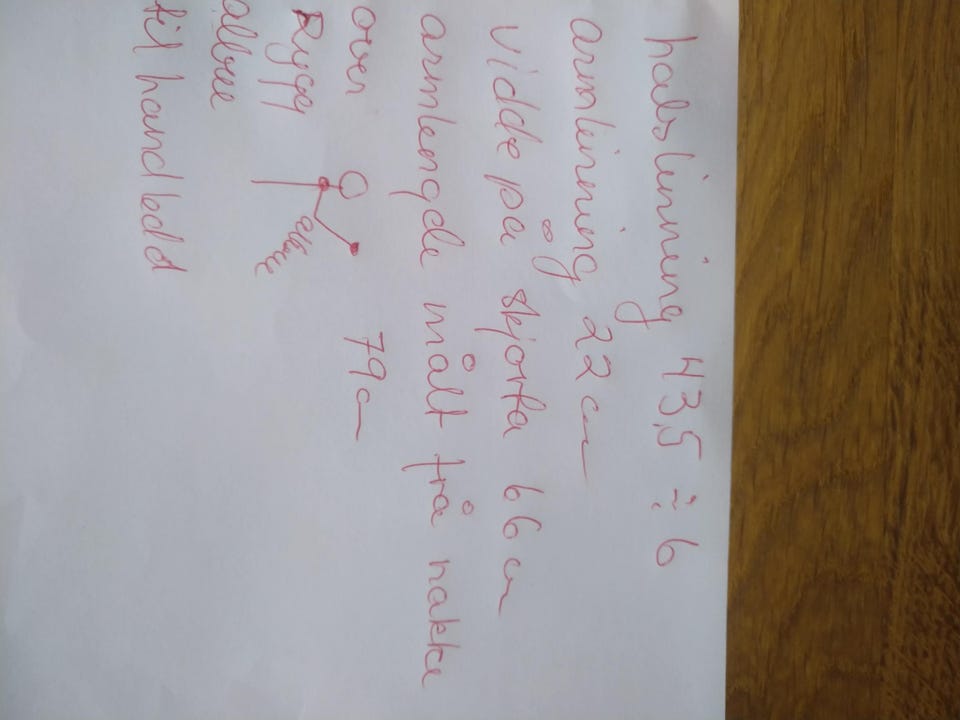 halslinning 43,5 ÷ 6
armlinning 22 cm
Vidde på skjorta 66 cm
armlengde målt frå nakke
over 79 c
Rygg
albue
til handledd